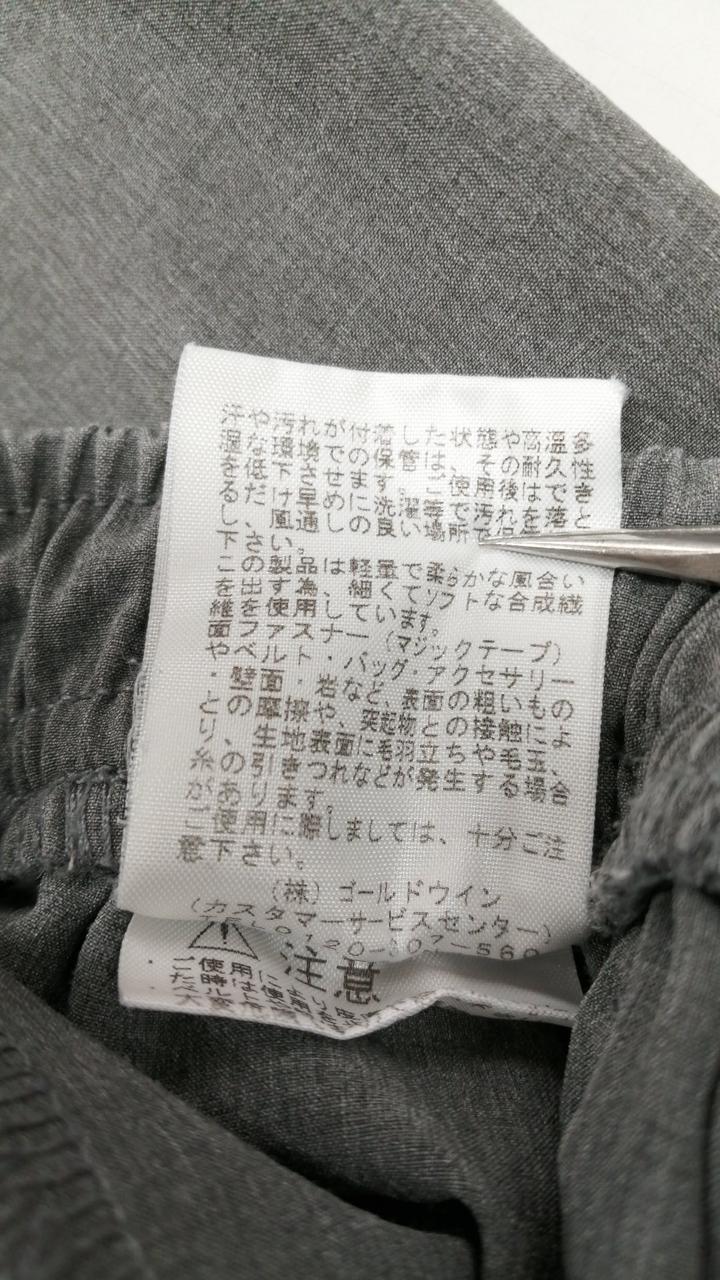 汗や汚れが付着した状態や高温多
湿な環境での保管は、その耐久性
を低下させます。ご使用後はできる
だけ早めに洗濯等で汚れを落と
し、風通しの良い場所で
下さい。
この製品は軽量で柔らかな風合い
を出す為、細くてソフトな合成繊
維を使用しています。
面ファスナー(マジックテープ)
やベルト・バッグ・アクセサリー
・壁面・岩など、表面の粗いもの
との摩擦や、突起物との接触によ
り、生地表面に毛羽立ちや毛玉、
糸の引きつれなどが発生する場合
があります。
ご使用に際しましては、十分ご注
意下さい。
(株)ゴールドウイン
(カスタマーサービスセンター)
TEL0120-307-560
注意
ご使用に